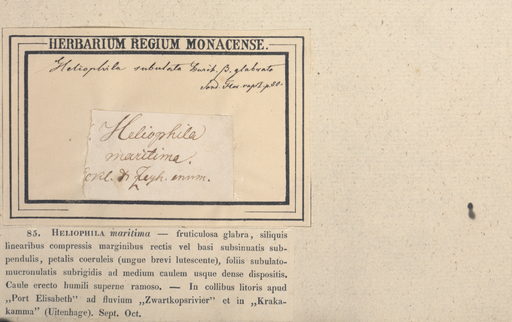 HERBARIUM REGIUM MONACENSE.
Heliophila subulata Burch. β. glabrata
Sond. Flor. cap. I. p.
Heliophila
maritima.
Ekl. & Zeyh. enum.
85. HELIOPHILA maritima — fruticulosa glabra, siliquis
linearibus compressis marginibus rectis vel basi subsinuatis sub-
pendulis, petalis coeruleis (ungue brevi lutescente), foliis subulato-
mucronulatis subrigidis ad medium caulem usque dense dispositis.
Caule erecto humili superne ramoso. — In collibus litoris apud
„Port Elisabeth" ad fluvium „Zwartkopsrivier" et in „Kraka-
kamma" (Uitenhage). Sept. Oct.